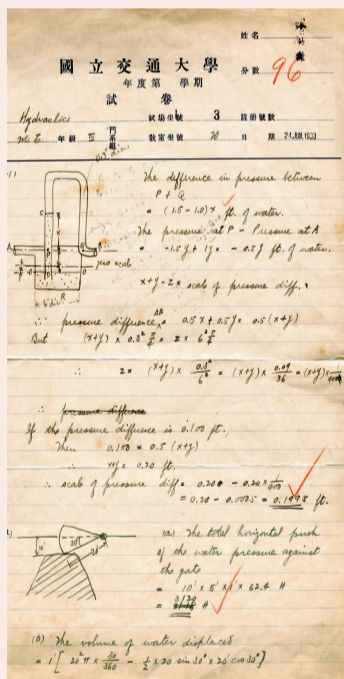 姓名
國立交通大學
分數 96
年度第 學期
試卷
Hydraulics 試場坐號 3 註冊號數
M. E. 年級 III 門系組 教室坐號 70 日期 24 JUN 1933
The difference in pressure between
P + Q
= (1.5 - 1.0) x ft. of water.
The pressure at P - Pressure at A
= -1.5 y + 1 y = - 0.5 y ft. of water.
x+y-z = scale of pressure diff.
zero scale
6" dia.
∴ pressure difference = 0.5 x + 0.5 y = 0.5 (x+y)
But (x+y) x 0.3² π/4 = z x 6² π/4
∴ z = (x+y) x 0.3²/6² = (x+y) x 0.09/36 = (x+y) x 1/400
∴ pressure difference
If the pressure difference is 0.100 ft.,
Then 0.100 = 0.5 (x+y)
∴ x+y = 0.20 ft.
∴ scale of pressure diff = 0.200 - 0.20 x 1/400
= 0.20 - 0.0005 = 0.1995 ft.
(a) The total horizontal push
of the water pressure against
the gate
10' 30° 20'
= 10' x 5' x 1' x 62.4 #
= 3120 #
(b) The volume of water displaced
= 1' [ 20² π x 30/360 - 1/2 x 20 sin 30° x 20' cos 30° ]